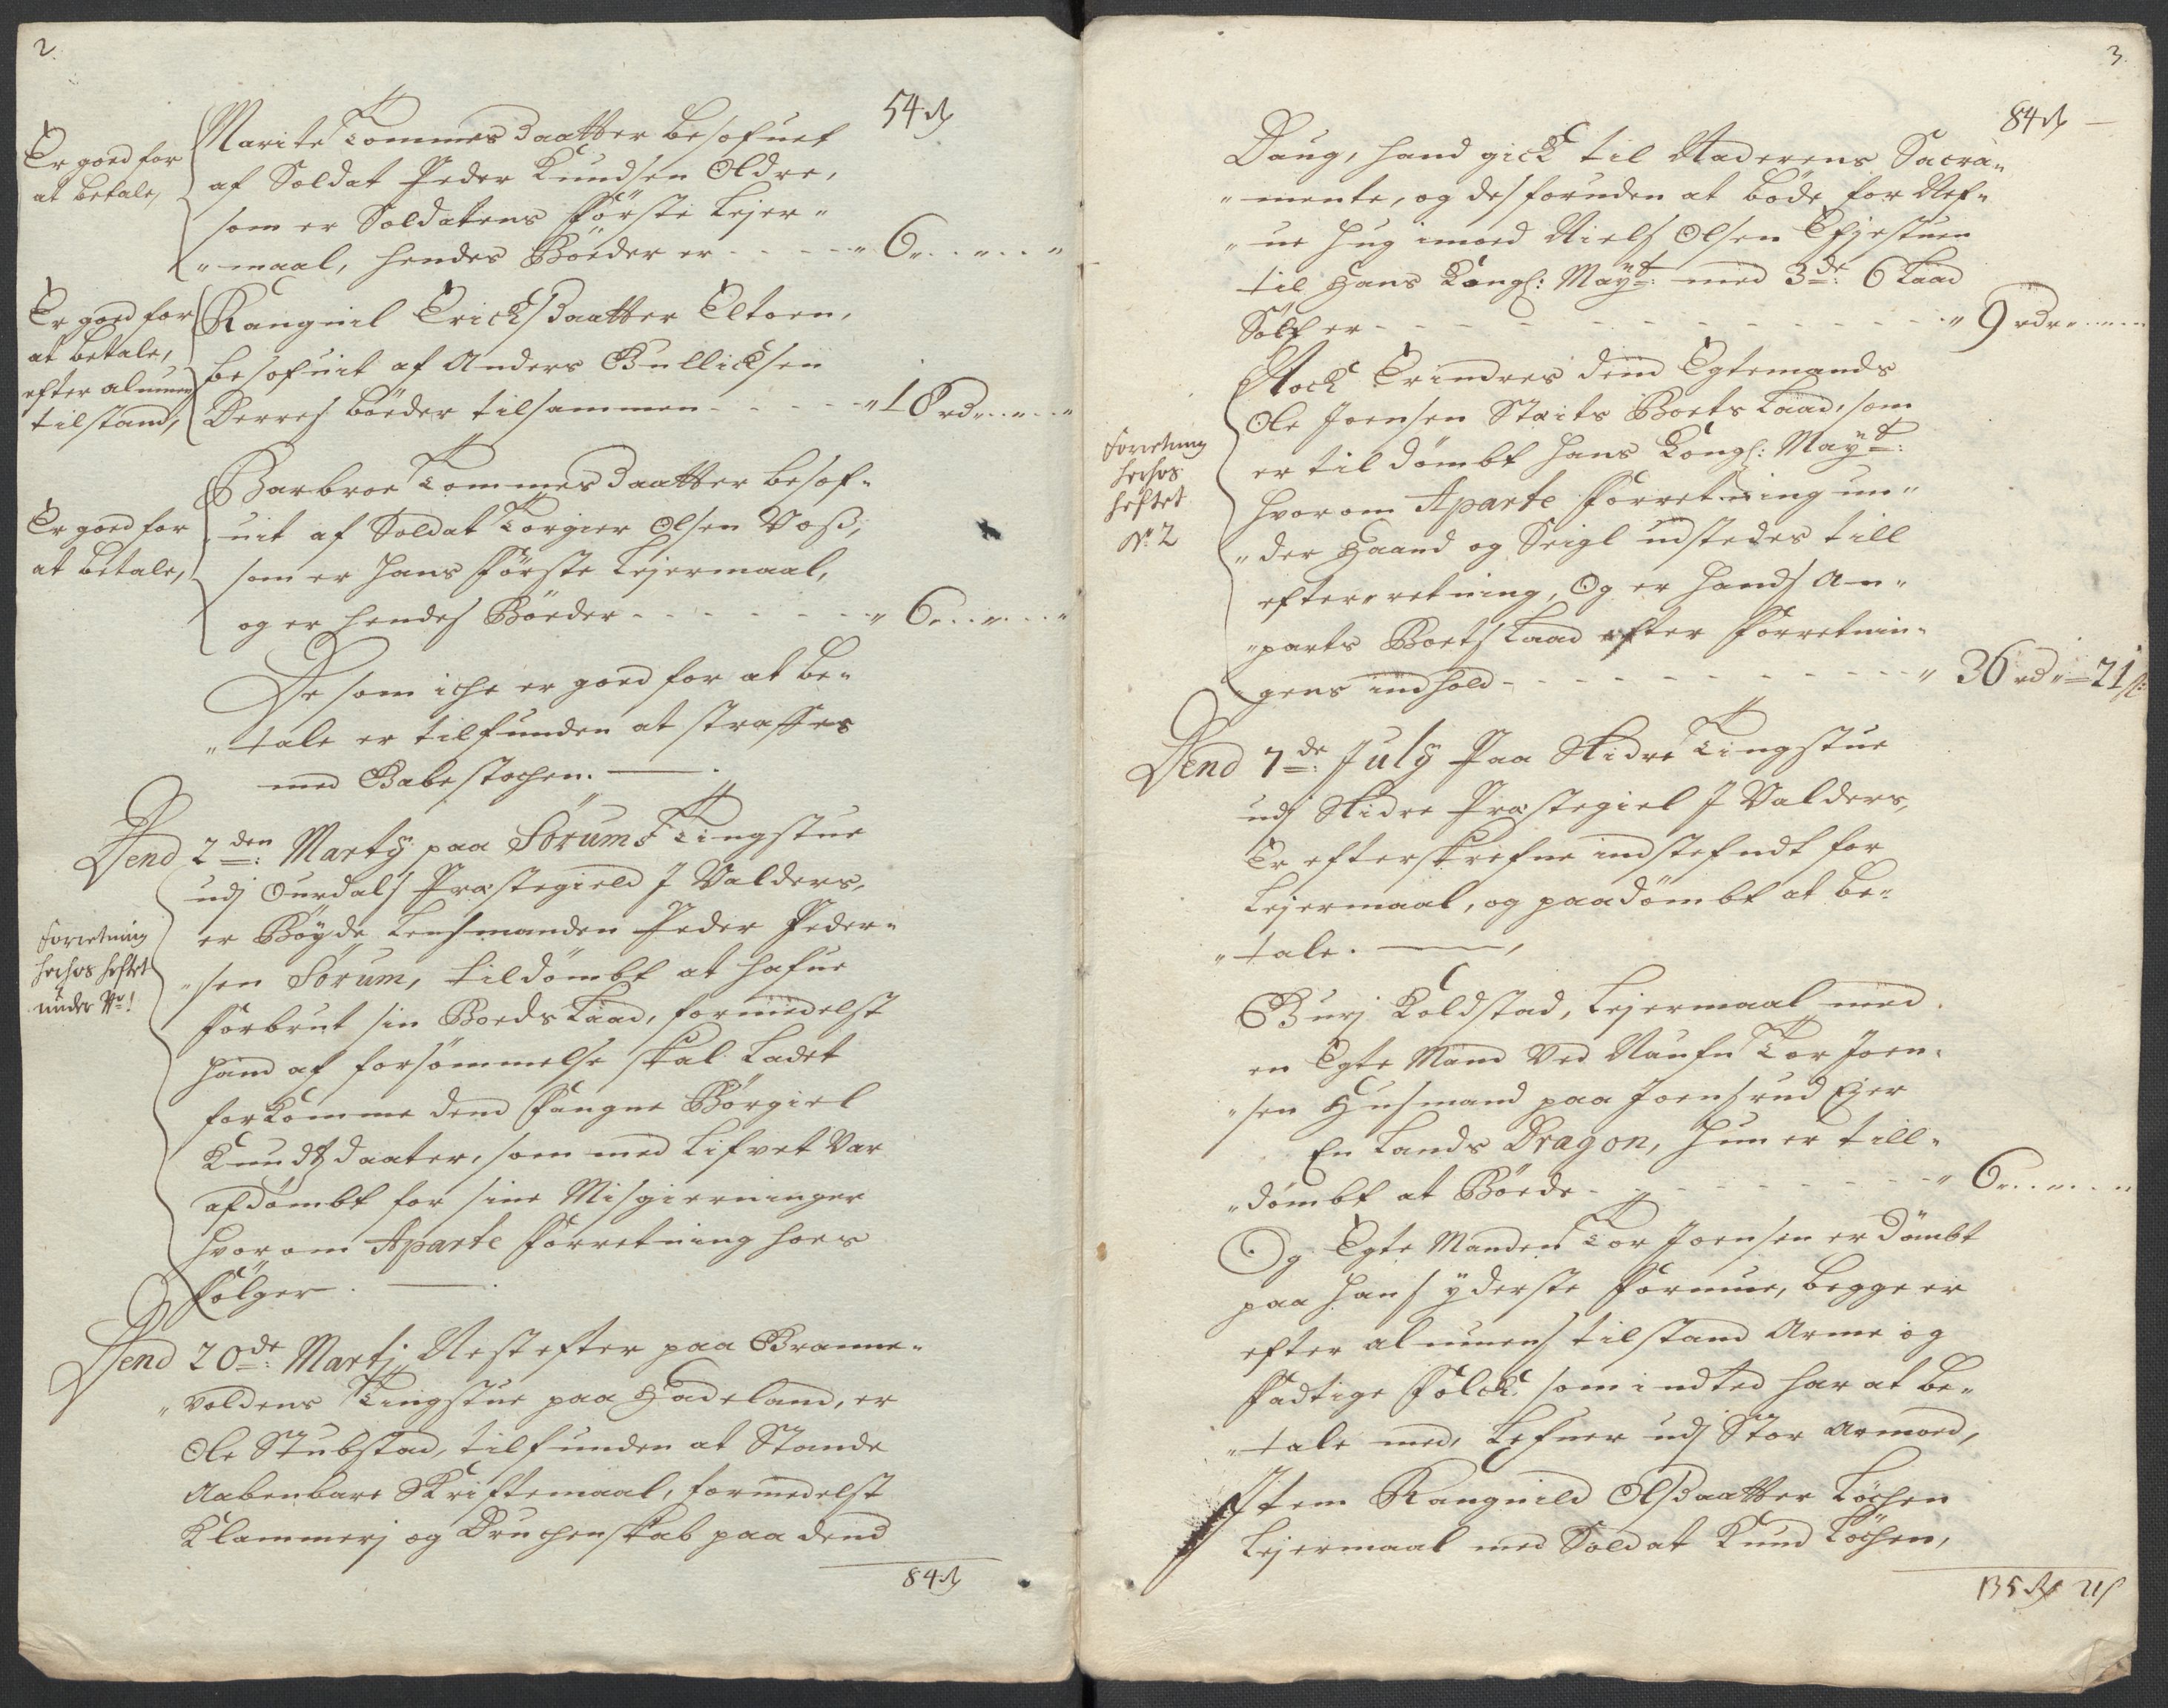 2
54 rd
Er goed for
at betale,
Marite Tommesdaatter besofuet
af Soldat Peder Knudsen Oldre,
som er Soldatens første Lejer-
maal, hendes Bøeder er - - - - - 6 - - - -
Er goed for
at betale,
efter almuens
tilstand,
Rangniel Erichsdaatter Eltoen,
besofuit af Anders Gullicksen
Derres bøeder tilsammen - - - - - 18 rdr - - -
Er goed for
at betale,
Barbroe Tommesdaatter besof-
uit af Soldat Torgier Olsen Voss,
som er hans første Lejermaal,
og er hendes Bøeder - - - - - 6 - - - -
De som iche er goed for at be-
tale er tilfunden at straffes
med Gabestochen.
Dend 2den: Marty paa Sørums Tingstue
udj Ourdals Præstegield J Valders,
er Bøyde Lensmanden Peder Peder-
sen Sørum, tildømbt at hafue
forbrut sin Boeds Laad, formedelst
hand af forsømmelse skal Ladet
forkomme dend fangne Børgiel
Knudsdaater, som med Lifvet Var
afdømbt for sine Misgierninger
hvorom Aparte forretning hoes
følger.
forretning
herhos heftet
under No 1
Dend 20de: Martj Nest efter paa Granne-
voldens Tingstue paa Hadeland, er
Ole Stubstad, tilfunden at Stande
Aabenbare Skriftemaal, formedelst
Klammerj og Druchenskab paa dend
84 rd
3
84 rd
Daug, hand gick til Naderens Sacra-
mente, og desforuden at bøde for Nef-
ue hug imoed Niels Olsen
til Hans Kongl: Mayt: med 3de: 6 Laad
Sølf er - - - - - 9 rdr - - -
Noch Erindres dend Egtemands
Ole Joensen Staits Boets Laad, som
er til dømbt Hans Kongl: Mayt:
hvorom Aparte forretning un-
der Haand og Seigl udstedes till
efterretning, Og er hands An-
parts Boets Laad efter forretnin-
gens indhold - - - - - 36 rd - 21 s:
forretning
herhos
heftet
No. 2
Dend 7de: July Paa Slidre Tingstue
udj Slidre Præstegiel J Valders,
Er efterskrefne indstefndt for
Lejermaal, og paadømbt at be-
tale.
Gurj Koldstad, Lejermaal med
en Egte Mand Ved Naufn Tor Joen-
sen Husmand paa Joensrud Ejer
En Lands Dragon, hun er till-
dømbt at Bøede - - - - - 6 - - - -
Og Egte Manden Tor Joensen er dømbt
paa hans yderste formue, begge er
efter almuens tilstand Arme og
fadtige folck som indted har at be-
tale med, Lefuer udj Stor Armoed,
Item Rangnild Olsdaatter Løchen
Lejermaal med Soldat Knud Løchen,
135 rd 21 s